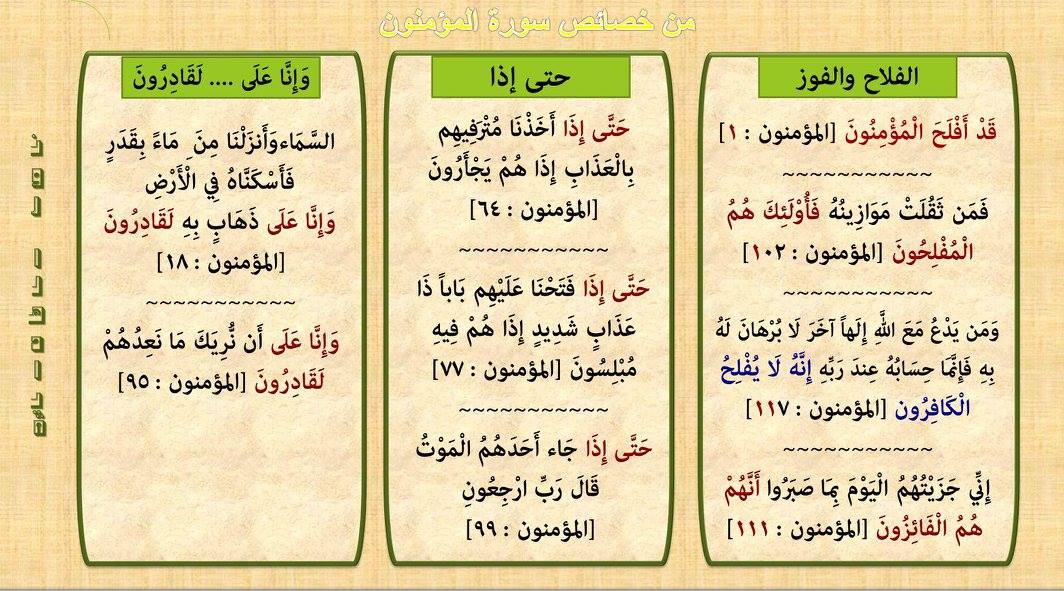 من خصائص سورة المؤمنون
الفلاح والفوز
قَدْ أَفْلَحَ الْمُؤْمِنُونَ [المؤمنون : ١]
~~~~~~~~~~~
فَمَن ثَقُلَتْ مَوَازِينُهُ فَأُوْلَئِكَ هُمُ
الْمُفْلِحُونَ [المؤمنون : ١٠٢]
~~~~~~~~~~~
وَمَن يَدْعُ مَعَ اللَّهِ إِلَهاً آخَرَ لَا بُرْهَانَ لَهُ
بِهِ فَإِنَّمَا حِسَابُهُ عِندَ رَبِّهِ إِنَّهُ لَا يُفْلِحُ
الْكَافِرُون [المؤمنون : ١١٧]
~~~~~~~~~~~
إِنِّي جَزَيْتُهُمُ الْيَوْمَ بِمَا صَبَرُوا أَنَّهُمْ
هُمُ الْفَائِزُونَ [المؤمنون : ١١١]
حتى إذا
حَتَّى إِذَا أَخَذْنَا مُتْرَفِيهِم
بِالْعَذَابِ إِذَا هُمْ يَجْأَرُونَ
[المؤمنون : ٦٤]
~~~~~~~~~~~
حَتَّى إِذَا فَتَحْنَا عَلَيْهِم بَاباً ذَا
عَذَابٍ شَدِيدٍ إِذَا هُمْ فِيهِ
مُبْلِسُونَ [المؤمنون : ٧٧]
~~~~~~~~~~~
حَتَّى إِذَا جَاء أَحَدَهُمُ الْمَوْتُ
قَالَ رَبِّ ارْجِعُونِ
[المؤمنون : ٩٩]
وَإِنَّا عَلَى .... لَقَادِرُونَ
السَّمَاءوَأَنزَلْنَا مِنَ مَاءً بِقَدَرٍ
فَأَسْكَنَّاهُ فِي الْأَرْضِ
وَإِنَّا عَلَى ذَهَابٍ بِهِ لَقَادِرُونَ
[المؤمنون : ١٨]
~~~~~~~~~~~
وَإِنَّا عَلَى أَن نُّرِيَكَ مَا نَعِدُهُمْ
لَقَادِرُونَ [المؤمنون : ٩٥]